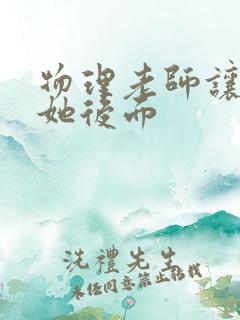 物理老師讓
她後面
洗禮先生
未經同意禁止轉載